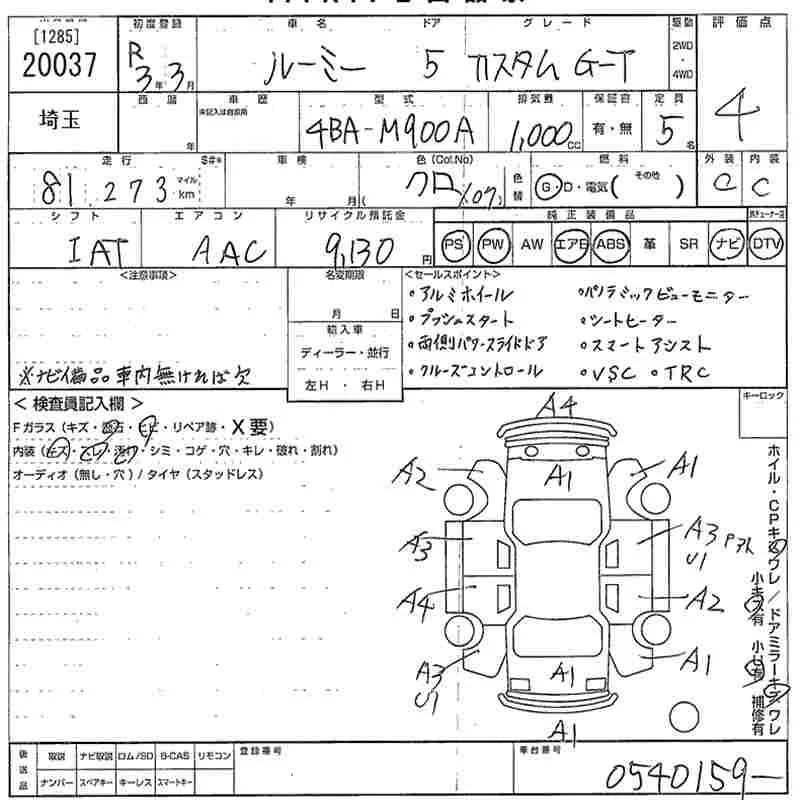 [1285] 初度登録 車名 ドア グレード 駆動 評価点
20037 R3年3月 ルーミー 5 カスタム G-T 2WD・4WD 4
埼玉 西暦 年 車歴 未記入は自家用 型式 排気量 保証書 定員
4BA-M900A 1,000cc 有・無 5名
走行 S#* 車検 色(Col.No) 燃料 外装 内装
81,273 マイル km 年 月 クロ (X07) 色替 G・D・電気( その他 ) C C
シフト エアコン リサイクル預託金 純正装備品
IAT AAC 9,130円 PS PW AW エアB ABS 革 SR ナビ DTV
<注意事項> 名変期限 <セールスポイント>
・アルミホイール ・パノラミックビューモニター
月 日 ・プッシュスタート ・シートヒーター
輸入車 ・両側パワースライドドア ・スマートアシスト
ディーラー・並行
※ナビ備品車内無ければ欠 ・クルーズコントロール ・VSC ・TRC
左H ・ 右H
< 検査員記入欄 > キーロック
Fガラス (キズ・飛石・ヒビ・リペア跡・X要)
内装 (キズ・スレ・汚れ・シミ・コゲ・穴・キレ・破れ・割れ)
オーディオ (無し・穴) / タイヤ (スタッドレス)
A4
A2 A1 A1
A3 A3 Pアト
U1
A4 A2
A3 A1 A1
U1
A1
ホイル・CPキズワレ / ドアミラーキズワレ
小キズ有 小凹有 補修有
後送品 取説 ナビ取説 ロム/SD B-CAS リモコン 登録番号 車台番号
ナンバー スペアキー キーレス スマートキー 0540159